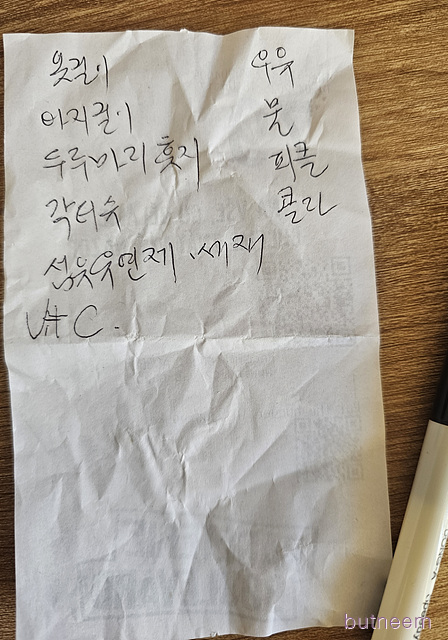 옷걸이
바지걸이
두루마리 휴지
각티슈
섬유유연제、세재
Vit C.
우유
물
피클
콜라
butneem